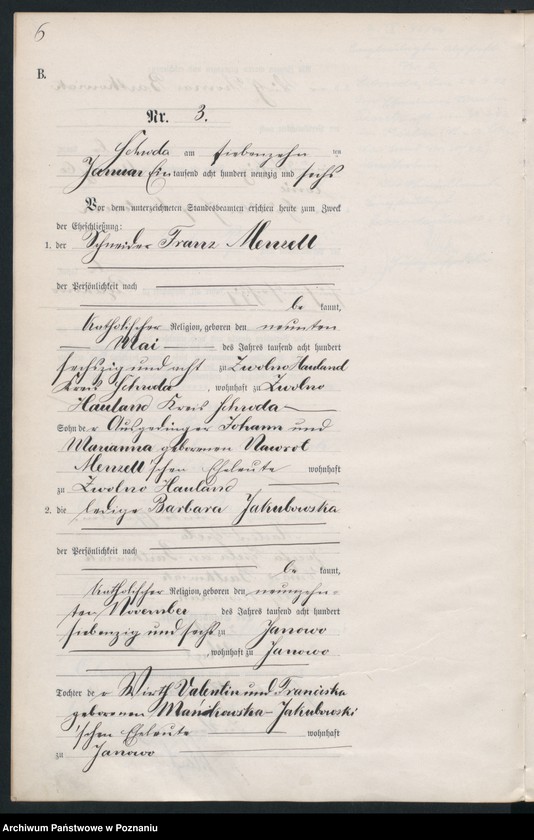 6
B.
Nr. 3.
Schroda am siebenzehn ten
Januar Ein tausend acht hundert neunzig und sechs
Vor dem unterzeichneten Standesbeamten erschien heute zum Zweck
der Eheschließung:
1. der Schneider Franz Menzell
der Persönlichkeit nach
be kannt,
katholischer Religion, geboren den neunten
Mai des Jahres tausend acht hundert
sechszig und acht zu Zwolno Hauland
Kreis Schroda, wohnhaft zu Zwolno
Hauland Kreis Schroda
Sohn der Ausgedinger Johann und
Marianna geborenen Nawrot
Menzell'schen Eheleute wohnhaft
zu Zwolno Hauland
2. die ledige Barbara Jakubowska
der Persönlichkeit nach
be kannt,
katholischer Religion, geboren den neunzehn-
ten November des Jahres tausend acht hundert
siebenzig und sechs zu Janowo
, wohnhaft zu Janowo
Tochter der Wirth Valentin und Franciska
geborenen Mańkowska-Jakubowski
'schen Eheleute wohnhaft
zu Janowo
Archiwum Państwowe w Poznaniu